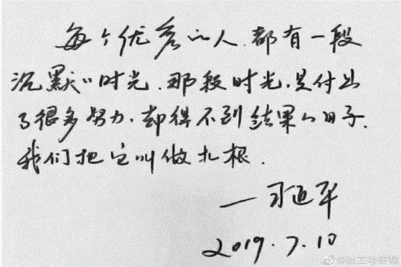 每个优秀的人，都有一段
沉默的时光。那段时光，是付出
了很多努力，却得不到结果的日子，
我们把它叫做扎根。
——习近平
2019.7.10